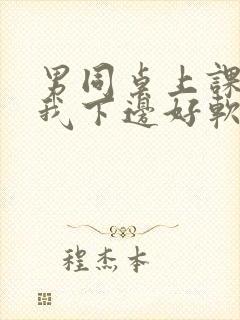 男同桌上課
我下邊好軟
程杰本